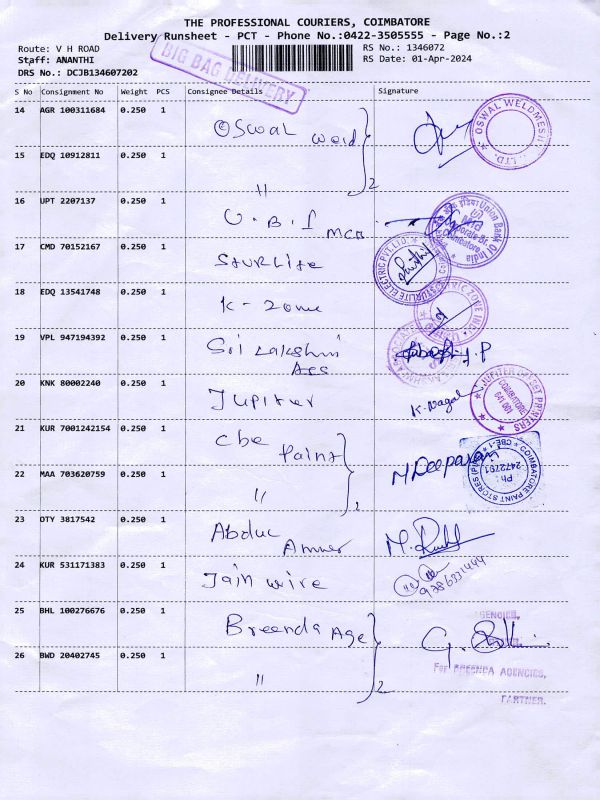 THE PROFESSIONAL COURIERS, COIMBATORE
Delivery Runsheet - PCT - Phone No.:0422-3505555 - Page No.:2
Route: V H ROAD
RS No.: 1346072
Staff: ANANTHI
RS Date: 01-Apr-2024
DRS No.: DCJB134607202
BIG BAG DELIVERY
S No Consignment No Weight PCS Consignee Details Signature
14 AGR 100311684 0.250 1 Oswal Weld
OSWAL WELDMESH LTD.
15 EDQ 10912811 0.250 1 " 2
16 UPT 2207137 0.250 1 U.B.I MCB
Union Bank of India
Coimbatore
17 CMD 70152167 0.250 1 Sturlite
STURLITE ELECTRIC PVT.LTD.
18 EDQ 13541748 0.250 1 K-Zone
19 VPL 947194392 0.250 1 Sri Lakshmi
Ags
20 KNK 80002240 0.250 1 Jupiter K. Nagal
JUPITER OFFSET PRINTERS
COIMBATORE
641 001
21 KUR 7001242154 0.250 1 Cbe Paint M. Deepa
COIMBATORE PAINT STORES (P)
CBE-1
Ph :
2472761
22 MAA 703620759 0.250 1 " 2
23 OTY 3817542 0.250 1 Abdul
24 KUR 531171383 0.250 1 Jain Wire
25 BHL 100276676 0.250 1 Breenda Age
AGENCIES,
26 BWD 20402745 0.250 1 " 2
For BREENDA AGENCIES,
PARTNER.